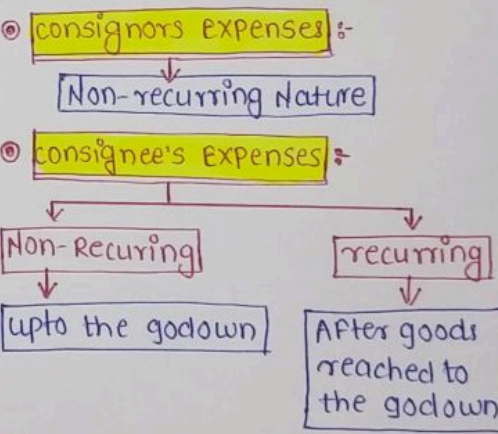 consignors expenses :-
Non-recurring Nature
consignee's expenses :-
Non-Recuring
recurring
upto the godown
After goods
reached to
the godown